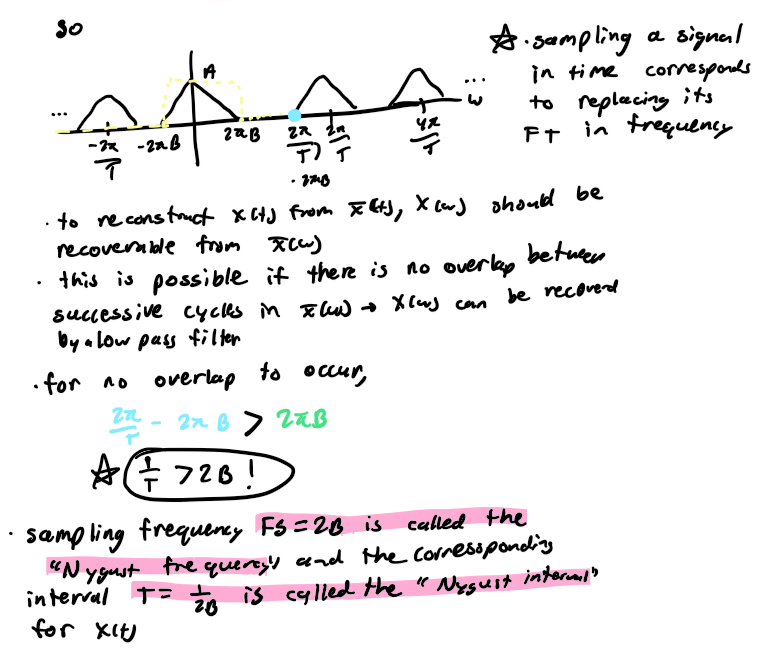 so
A
☆ · sampling a signal
in time corresponds
to replacing its
FT in frequency
... ...
ω
-2π/T -2πB 2πB 2π/T) 2π/T 4π/T
· 2πB
· to reconstruct x(t) from x̄(t), X(ω) should be
recoverable from x̄(ω)
· this is possible if there is no overlap between
successive cycles in x̄(ω) → X(ω) can be recovered
by a low pass filter
· for no overlap to occur,
2π/T - 2πB > 2πB
☆ 1/T > 2B !
· sampling frequency FS = 2B is called the
"Nyqust frequency" and the corressponding
interval T = 1/2B is called the "Nyqust interval"
for x(t)